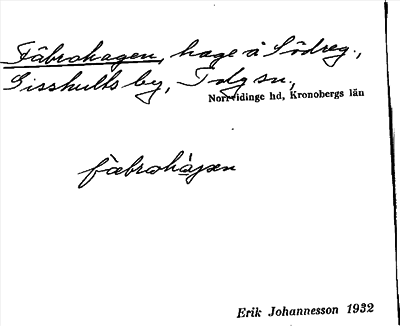 Fäbrohagen, hage å Södreg.,
Sisshults by, Tdg sn,
Norrvidinge hd, Kronobergs län
fàbrohàgen
Erik Johannesson 1932